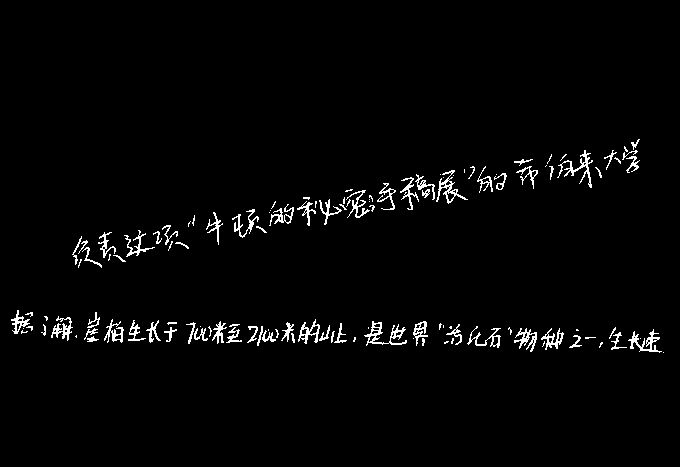 负责这项“牛顿的秘密手稿展”的希伯来大学
据了解，崖柏生长于700米至2100米的山上，是世界“活化石”物种之一，生长速